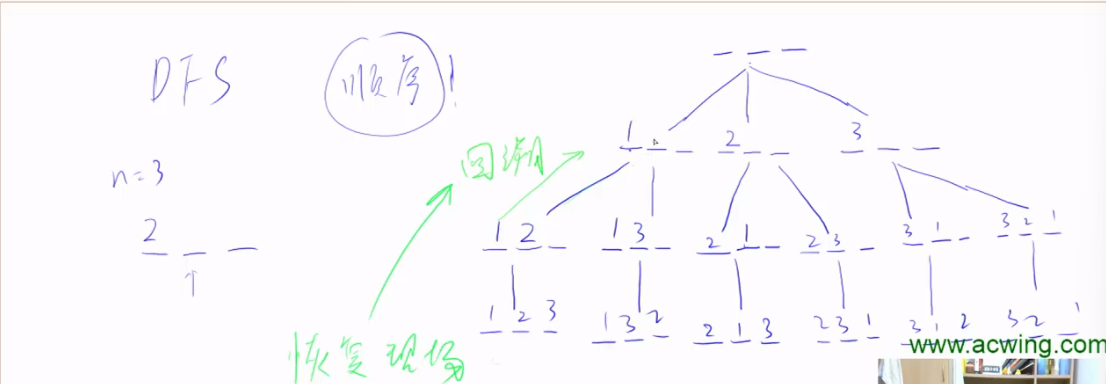 DFS 顺序!
n=3
2 _ _
↑
回溯
恢复现场
_ _ _
1 _ _ 2 _ _ 3 _ _
1 2 _ 1 3 _ 2 1 _ 2 3 _ 3 1 _ 3 2 1
1 2 3 1 3 2 2 1 3 2 3 1 3 1 2 3 2 1
www.acwing.com